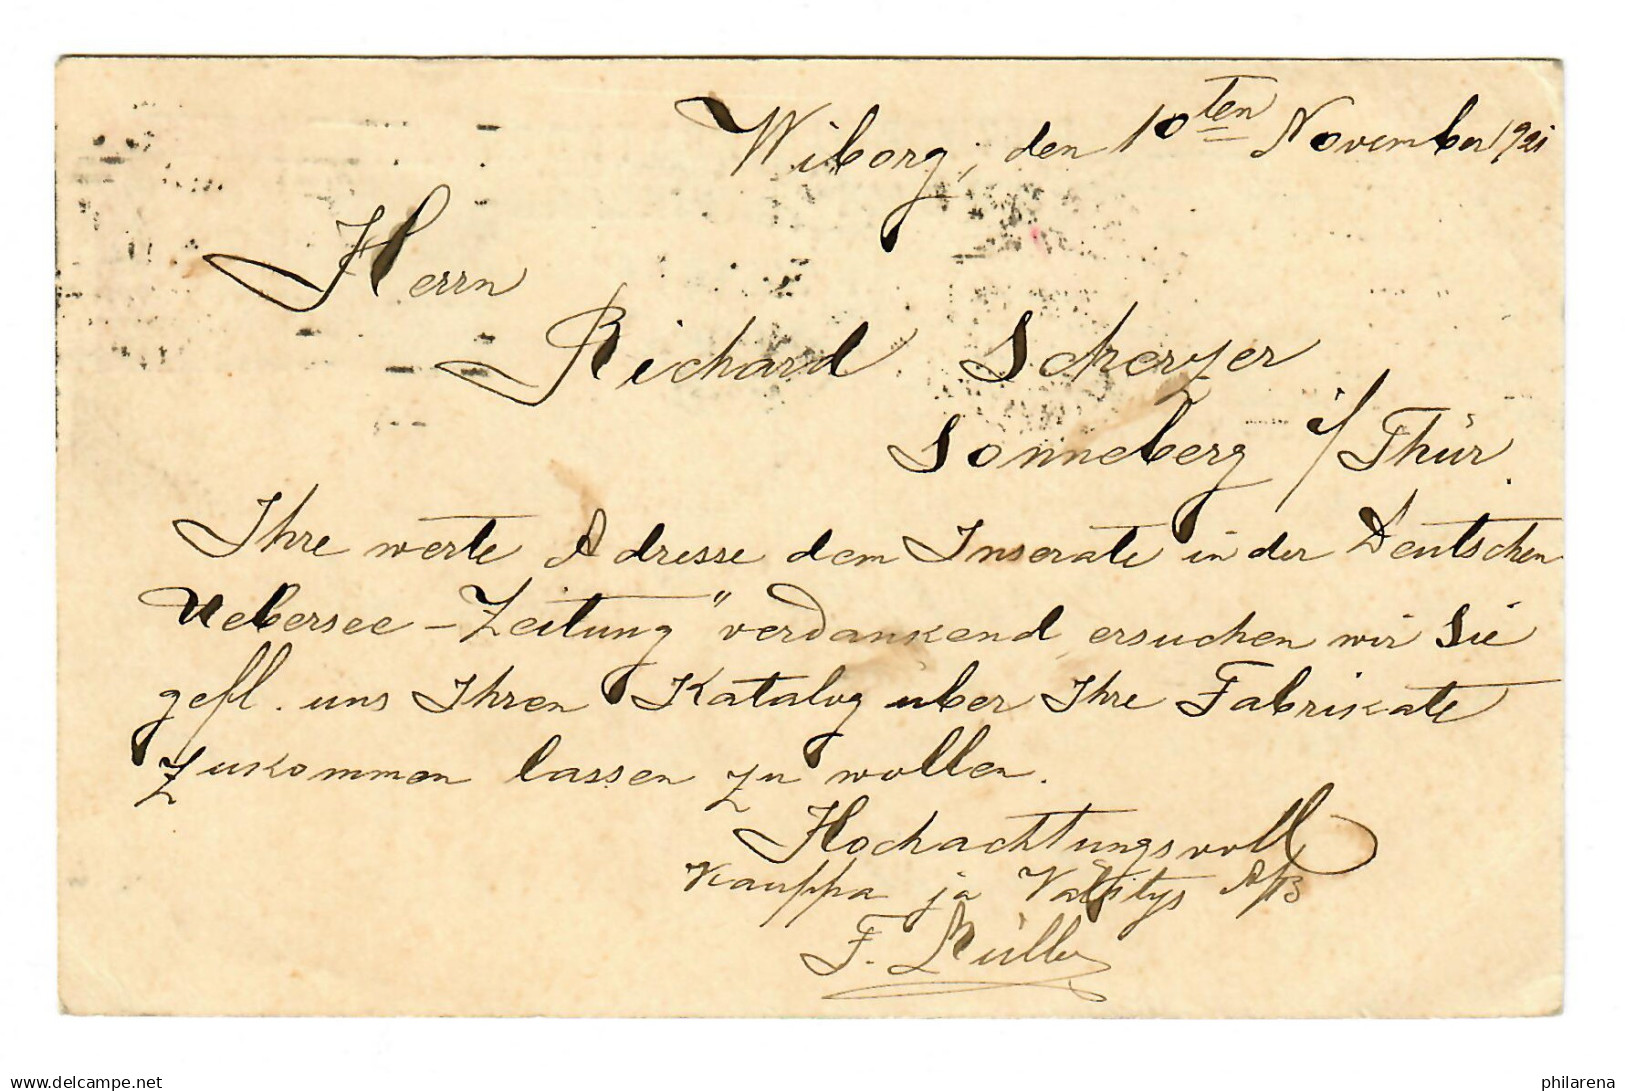 Wiborg, den 10ten November 1921
Herrn
Richard Scherzer
Sonneberg i/Thür.
Ihre werte Adresse dem Inserate in der Deutschen
Uebersee-Zeitung" verdankend ersuchen wir Sie
gefl. uns Ihren Katalog uber Ihre Fabrikate
zukommen lassen zu wollen.
Hochachtungsvoll
Kauppa ja Välitys A/B
F.
delcampe.net
philarena